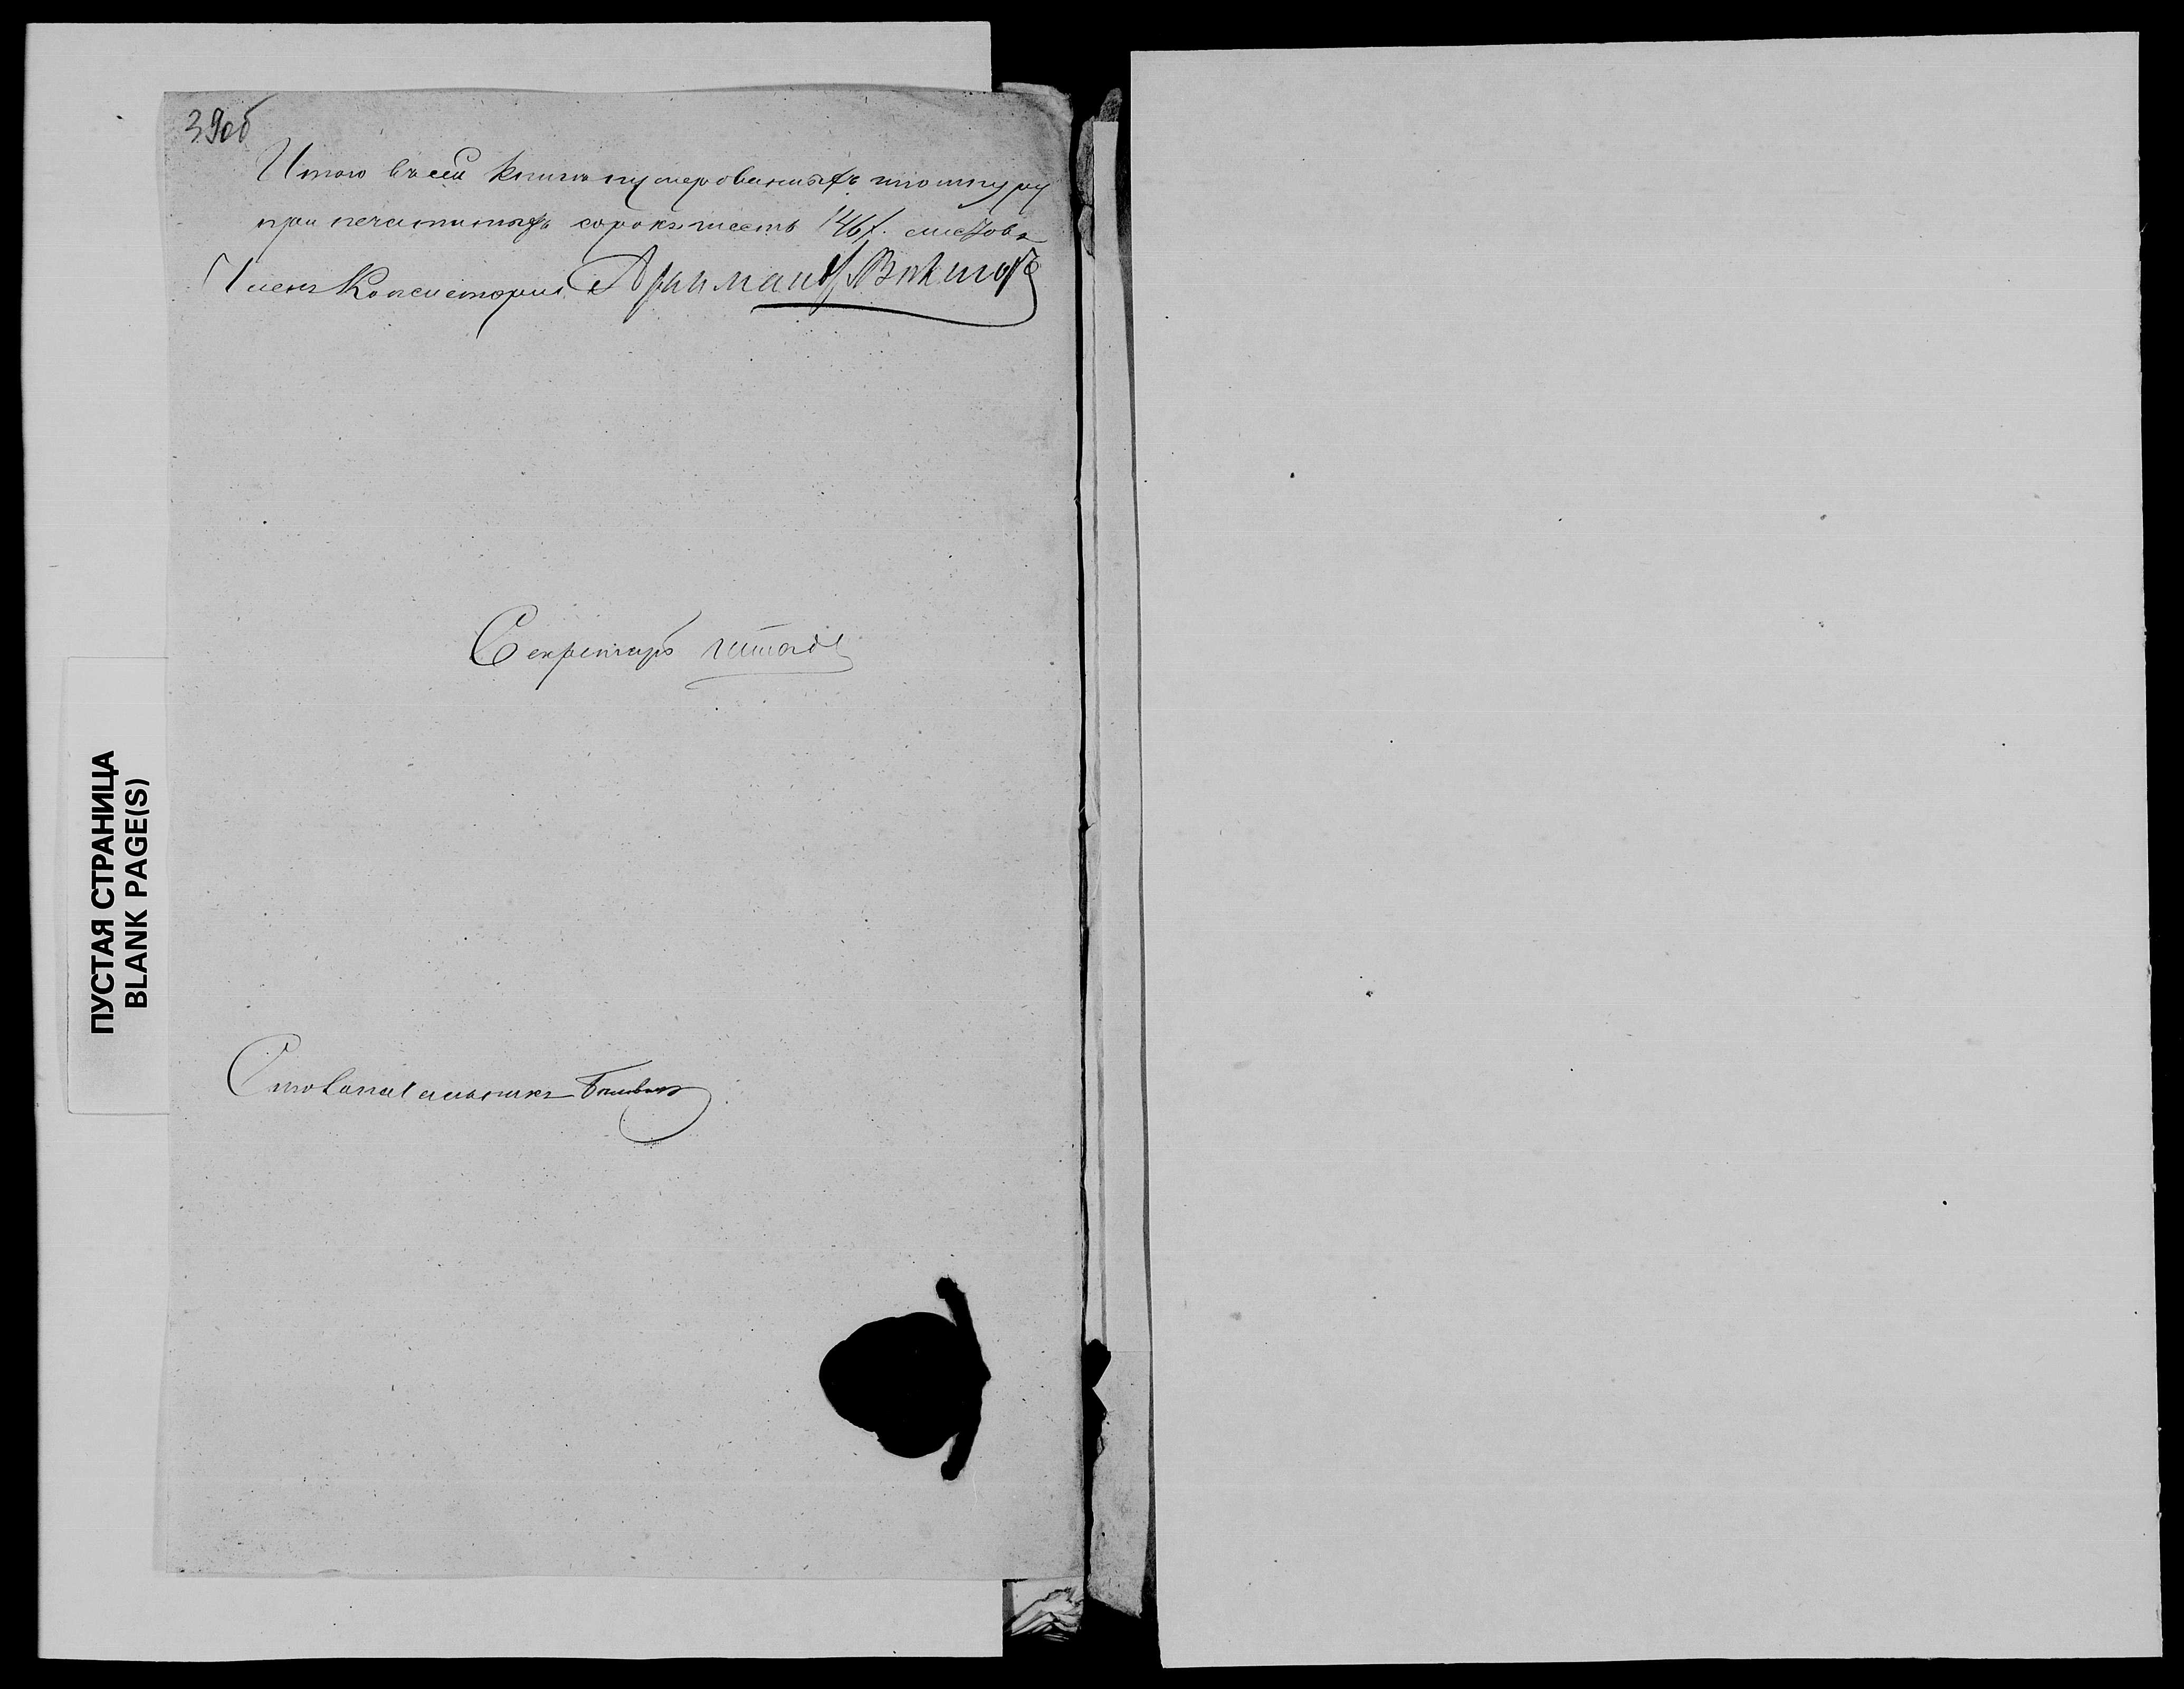 39об
Итого въ сей книгѣ нумерованныхъ шнуру
при печатныхъ сорокъ шесть /46/. листовъ
Членъ Консисторіи Архимандр.
Секретарь
Столоначальникъ
ПУСТАЯ СТРАНИЦА
BLANK PAGE(S)